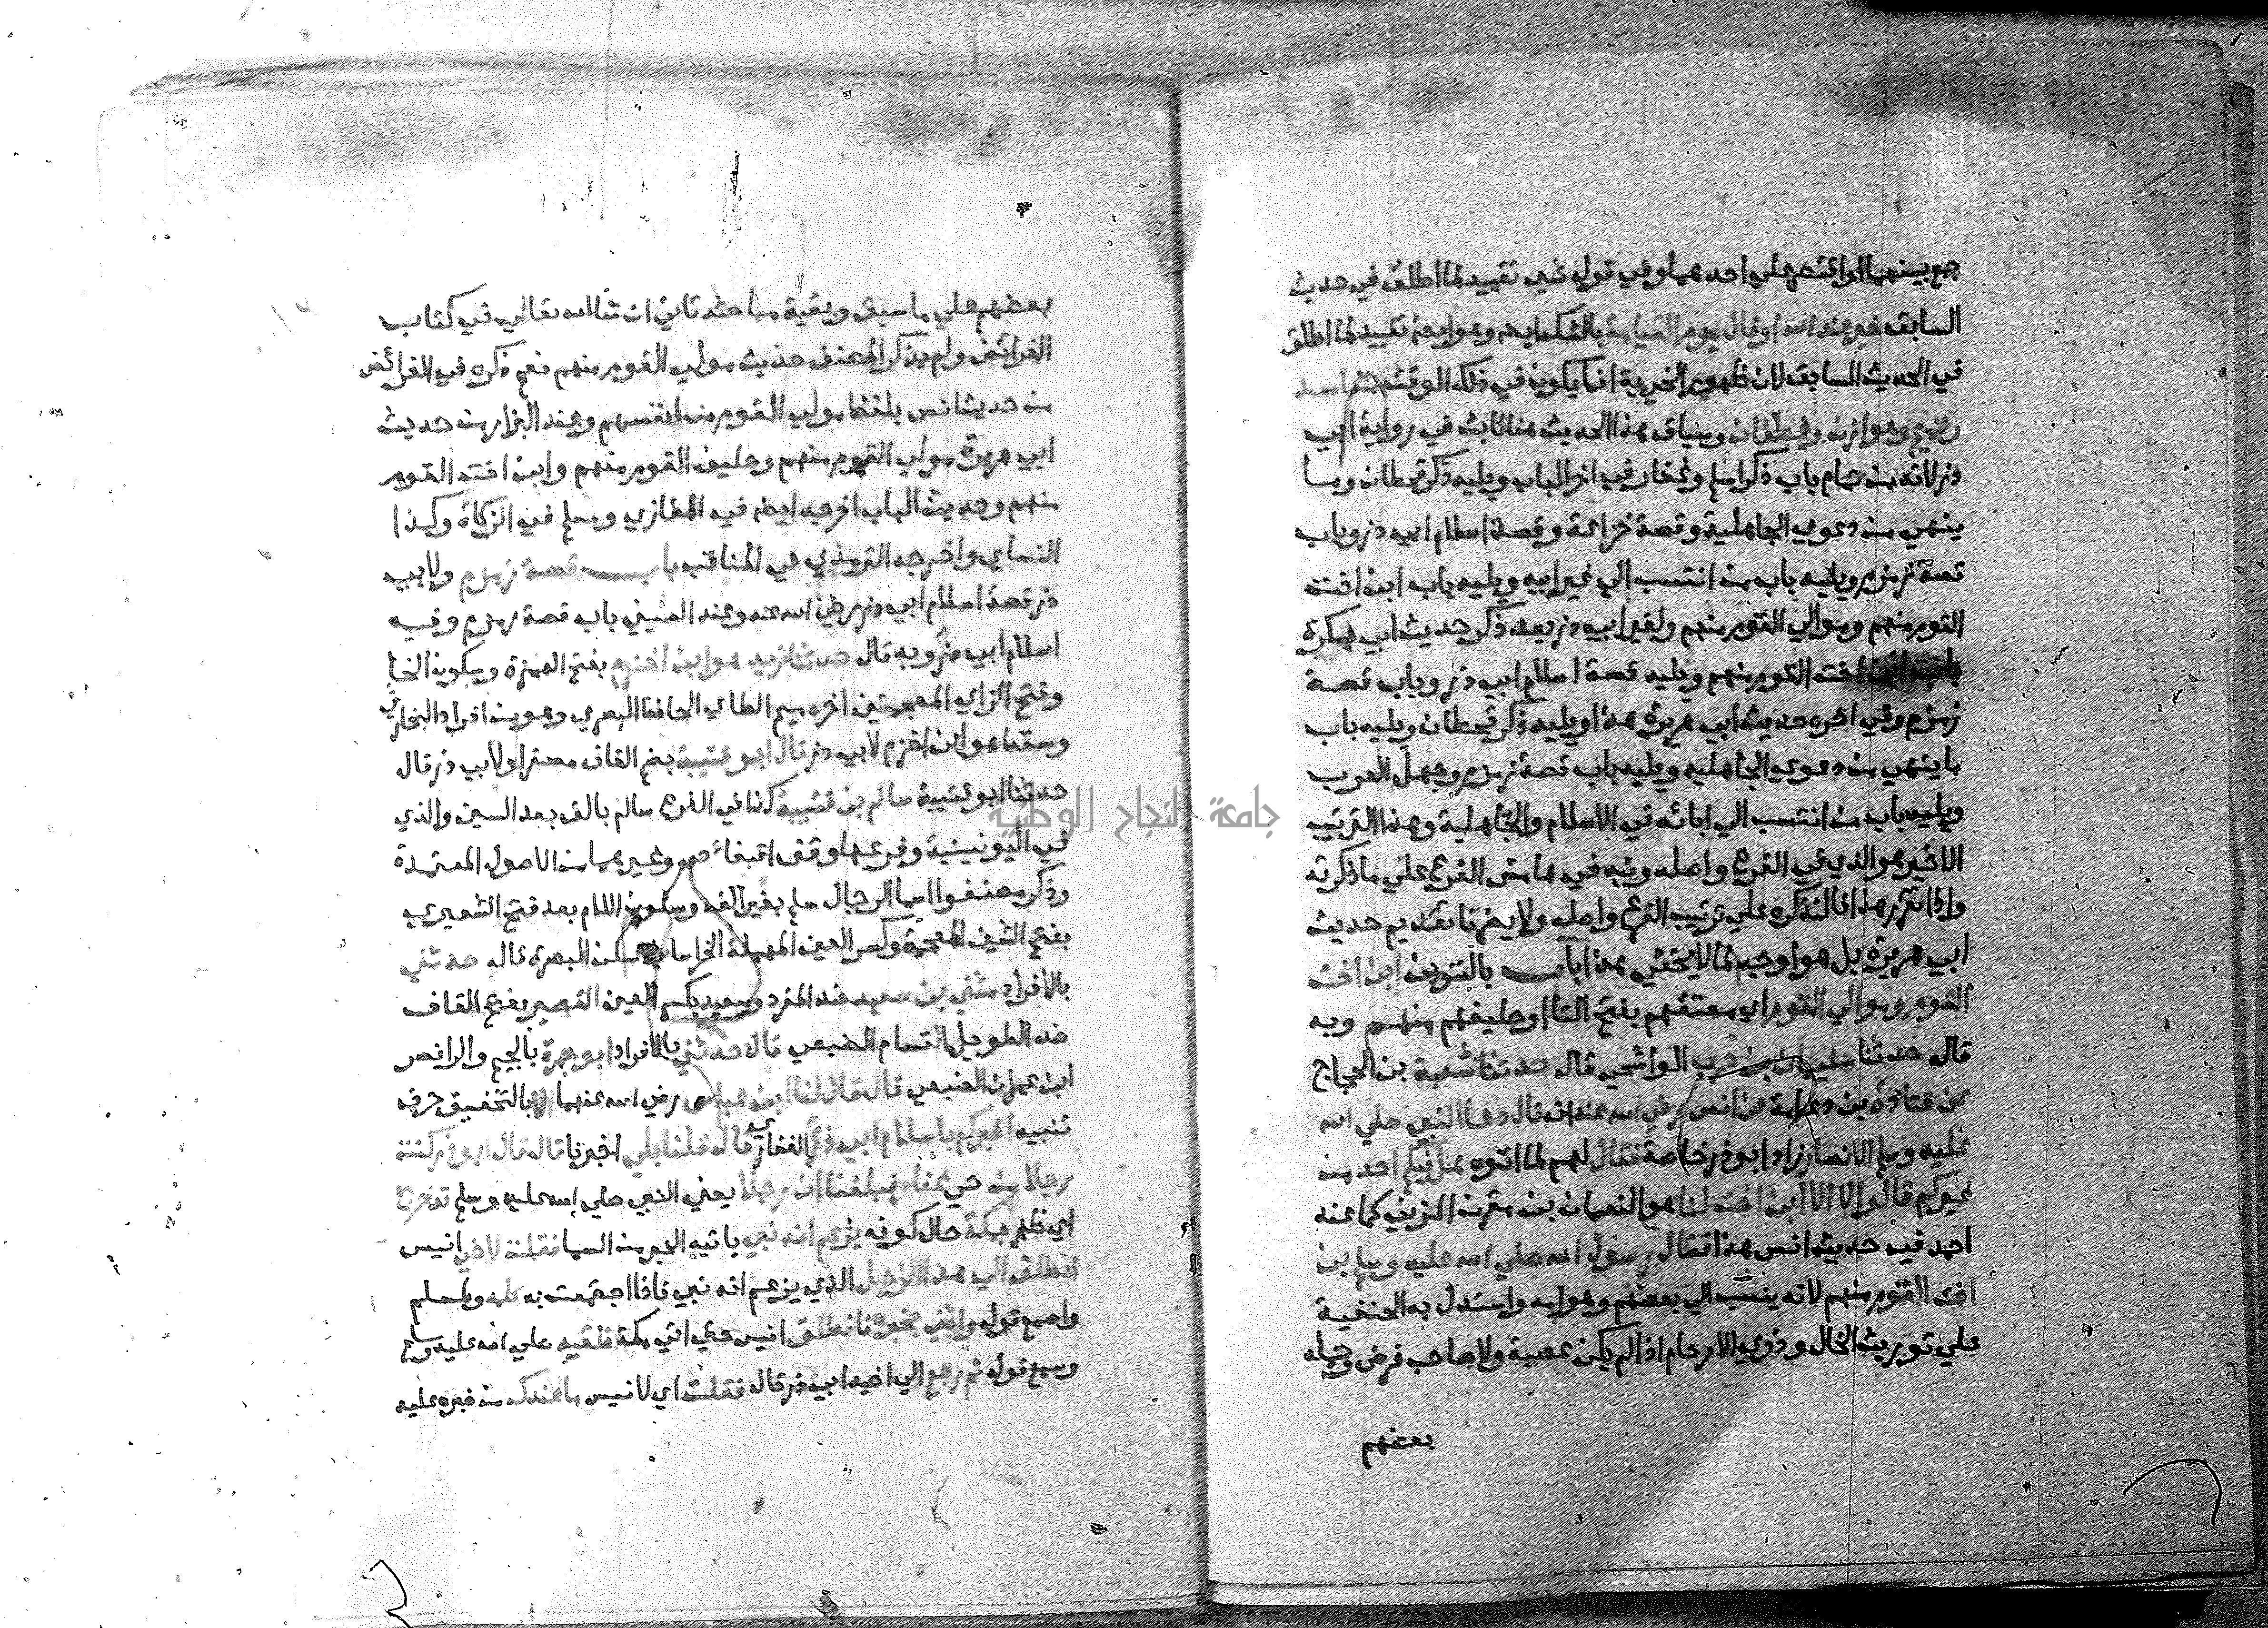 جمع بينهما او اقتصر علي احدهما وفي قوله شي تقييد لما اطلق في حديث
السابق خير عند الله او قال يوم القيامة بالشك وهو ايضا تقييد لما اطلق
في الحديث السابق لان ظهور الخيرية انما يكون في ذلك الوقت من اسد
وتميم وهوازن وغطفان وسياق هذا الحديث هنا ثابت في رواية ابي
ذر لانه من تمام باب ذكر اسلم وغفار في اخر الباب ويليه ذكر قحطان وما
ينهي من دعوي الجاهلية وقصة خزاعة وقصة اسلام ابي ذر وباب
قصة زمزم ويليه باب من انتسب الي غير ابيه ويليه باب ابن اخت
القوم منهم وموالي القوم منهم ولغير ابي ذر بعد ذكر حديث ابي بكرة
باب ابن اخت القوم منهم ويليه قصة اسلام ابي ذر وباب قصة
زمزم وفي اخره حديث ابي هريرة هذا ويليه ذكر قحطان ويليه باب
ما ينهي من دعوي الجاهلية ويليه باب قصة زمزم وجهل العرب
ويليه باب من انتسب الي ابائه في الاسلام والجاهلية وهذا الترتيب
الاخير هو الذي في الفرع واصله ونبه في هامش الفرع علي ما ذكرته
واذا تقرر هذا فالنذكره علي ترتيب الفرع واصله ولا يضرنا تقديم حديث
ابي هريرة بل هو اوجه لما لا يخفي هذا باب بالتنوين ابن اخت
القوم وموالي القوم اي معتقهم بفتح التا او حليفهم منهم وبه
قال حدثنا سليمان بن حرب الواشحي قال حدثنا شعبة بن الحجاج
عن قتادة بن دعامة عن انس رضي الله عنه انه قال دعا النبي صلي الله
عليه وسلم الانصار زاد ابو ذر خاصة فقال لهم لما اتوه هل فيكم احد من
غيركم قالوا لا الا ابن اخت لنا هو النعمان بن مقرن المزني كما عند
احمد في حديث انس هذا فقال رسول الله صلي الله عليه وسلم ابن
اخت القوم منهم لانه ينسب الي بعضهم وهو امه واستدل به الحنفية
علي توريث الخال وذوي الارحام اذا لم يكن عصبة ولا صاحب فرض وحمله
بعضهم
بعضهم علي ما سبق وبقية مباحثه تاتي ان شا الله تعالي في كتاب
الفرائض ولم يذكر المصنف حديث مولي القوم منهم نعم ذكره في الفرائض
من حديث انس بلفظ مولي القوم من انفسهم وعند البزار من حديث
ابي هريرة مولي القوم منهم وحليف القوم منهم وابن اخت القوم
منهم وحديث الباب اخرجه ايضا في المغازي ومسلم في الزكاة وكذا
النساي واخرجه الترمذي في المناقب باب قصة زمزم ولابي
ذر قصة اسلام ابي ذر رضي الله عنه وعند العيني باب قصة زمزم وفيه
اسلام ابي ذر وبه قال حدثنا زيد هو ابن اخزم بفتح الهمزة وسكون الخا
وفتح الزاي المعجمتين اخره ميم الطاي الحافظ البصري وهو من افراد البخاري
وسقط هو ابن اخزم لابي ذر قال ابو قتيبة بضم القاف مصغرا ولابي ذر قال
حدثنا ابو قتيبة سالم بن قتيبة كذا في الفرع سالم بالف بعد السين والذي
في اليونينية وفرعها وقف اقبغا ص وغيرهما من الاصول المعتمدة
وذكر مصنفوا اسما الرجال سلم بغير الف وسكون اللام بعد فتح الشعيري
بفتح الشين المعجمة وكسر العين المهملة الخراساني سكن البصرة قال حدثني
بالافراد مثني بن سعيد ضد المفرد وسعيد بكسر العين القصير بفتح القاف
ضد الطويل القسام الضبعي قال حدثني بالافراد ابو جمرة بالجيم والرا نصر
ابن عمران الضبعي قال قال لنا ابن عباس رضي الله عنهما الا بالتخفيف حرف
تنبيه اخبركم باسلام ابي ذر الغفاري قال قلنا بلي اخبرنا قال قال ابو ذر كنت
رجلا من غفار فبلغنا ان رجلا يعني النبي صلي الله عليه وسلم قد خرج
اي ظهر بمكة حال كونه يزعم انه نبي ياتيه الخبر من السما فقلت لاخي انيس
انطلق الي هذا الرجل الذي يزعم انه نبي فاذا اجتمعت به كلمه ولمسلم
واسمع قوله واتني بخبره فانطلق انيس حتي اتي مكة فلقيه صلي الله عليه وسلم
وسمع قوله ثم رجع الي اخيه ابي ذر قال فقلت اي لانيس ما عندك من خبره عليه
جامعة النجاح الوطنية